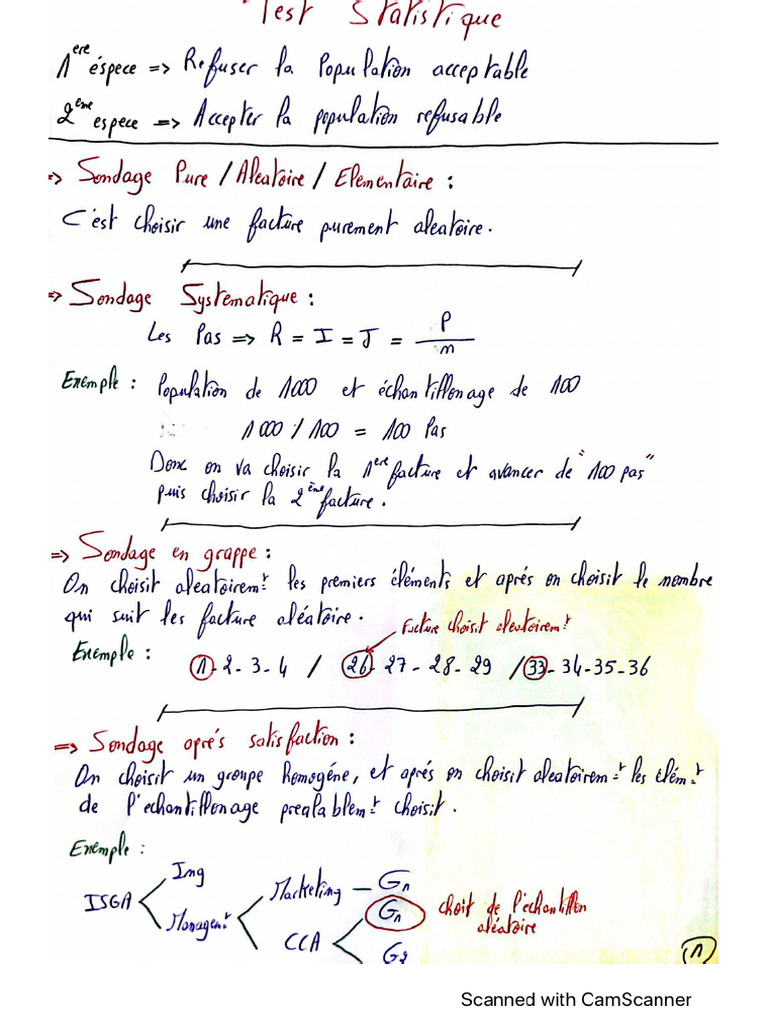 Test Statistique
1ere éspece => Refuser la Population acceptable
2ème espece => Accepter la population refusable
=> Sondage Pure / Aleatoire / Elementaire :
C'est choisir une facture purement aleatoire.
=> Sondage Systematique :
Les Pas => R = I = J = P/n
Exemple : Population de 1000 et échantillonage de 100
1000 / 100 = 100 Pas
Donc on va choisir la 1ere facture et avancer de "100 pas"
puis choisir la 2ème facture.
=> Sondage en grappe :
On choisit aleatoirem=t les premiers éléments et aprés on choisit le nombre
qui suit les facture aléatoire.
Facture choisit aleatoirem=t
Exemple : 1 - 2 - 3 - 4 / 26 - 27 - 28 - 29 / 33 - 34 - 35 - 36
=> Sondage aprés satisfaction :
On choisit un groupe homogéne, et aprés on choisit aleatoirem=t les élém=t
de l'echantillonage prealablem=t choisit.
Exemple :
ISGA
Ing
Managent
Marketing — G1
CCA
G1
G2
choit de l'échantillon
aléatoire
1
Scanned with CamScanner